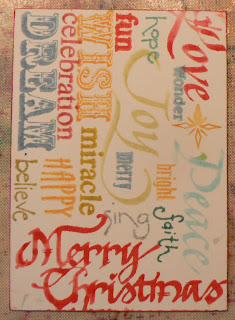 Love
hope
fun
WISH
celebration
DREAM
wonder
Joy
miracle
merry
Peace
bright
HAPPY
believe
faith
sing
Merry
Christmas